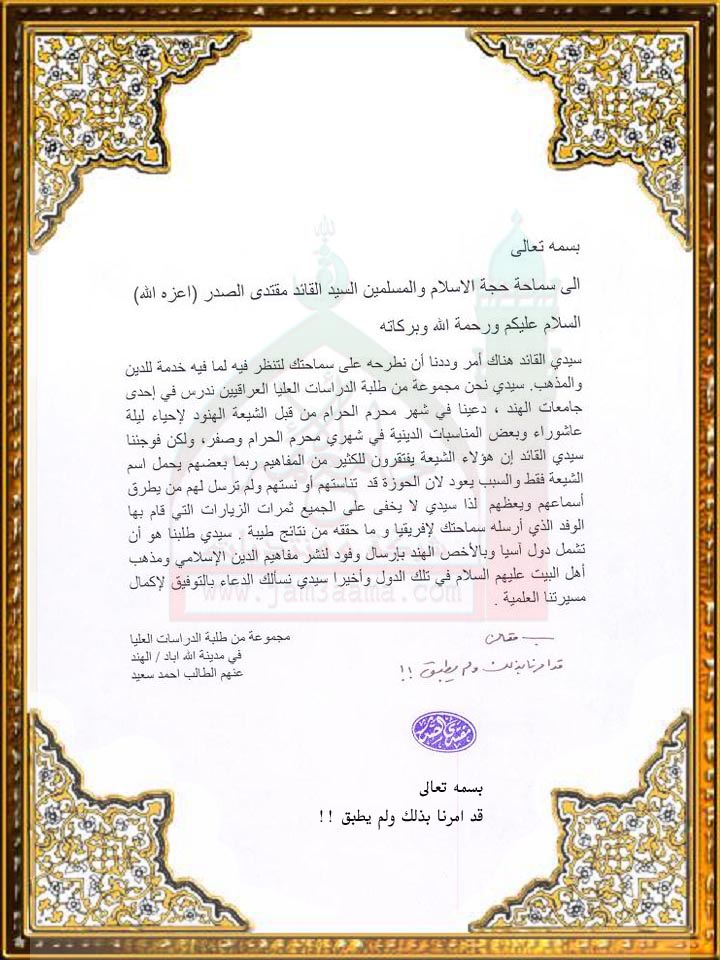 بسمه تعالى
الى سماحة حجة الاسلام والمسلمين السيد القائد مقتدى الصدر (اعزه الله)
السلام عليكم ورحمة الله وبركاته
سيدي القائد هناك أمر وددنا أن نطرحه على سماحتك لتنظر فيه لما فيه خدمة للدين
والمذهب. سيدي نحن مجموعة من طلبة الدراسات العليا العراقيين ندرس في إحدى
جامعات الهند ، دعينا في شهر محرم الحرام من قبل الشيعة الهنود لإحياء ليلة
عاشوراء وبعض المناسبات الدينية في شهري محرم الحرام وصفر، ولكن فوجئنا
سيدي القائد إن هؤلاء الشيعة يفتقرون للكثير من المفاهيم ربما بعضهم يحمل اسم
الشيعة فقط والسبب يعود لان الحوزة قد تناستهم أو نستهم ولم ترسل لهم من يطرق
أسماعهم ويعظهم لذا سيدي لا يخفى على الجميع ثمرات الزيارات التي قام بها
الوفد الذي أرسله سماحتك لإفريقيا و ما حققه من نتائج طيبة . سيدي طلبنا هو أن
تشمل دول آسيا وبالأخص الهند بإرسال وفود لنشر مفاهيم الدين الإسلامي ومذهب
أهل البيت عليهم السلام في تلك الدول وأخيرا سيدي نسألك الدعاء بالتوفيق لإكمال
مسيرتنا العلمية .
www.jam3aama.com
مجموعة من طلبة الدراسات العليا
في مدينة الله اباد / الهند
عنهم الطالب احمد سعيد
بسمه تعالى
قد امرنا بذلك ولم يطبق !!
مقتدى الصدر
بسمه تعالى
قد امرنا بذلك ولم يطبق !!